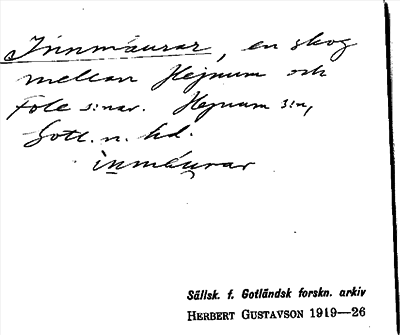 Innmáurar, en skog
mellan Hejnum och
Fole s:nar. Hejnum s:n,
Gotl. n. hd.
inmáurar
Sällsk. f. Gotländsk forskn. arkiv
HERBERT GUSTAVSON 1919—26